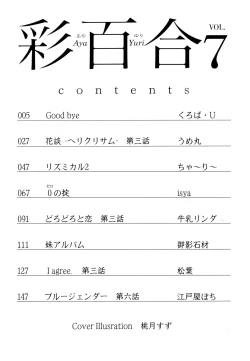 彩百合 VOL. 7
あや ゆり
Aya Yuri
contents
005 Good bye くろば・U
027 花談 -ヘリクリサム- 第三話 うめ丸
047 リズミカル2 ちゃ〜り〜
067 0の掟 isya
091 どろどろと恋 第三話 牛乳リンダ
111 妹アルバム 御影石材
127 I agree. 第三話 松葉
147 ブルージェンダー 第六話 江戸屋ぽち
Cover Illusration 桃月すず